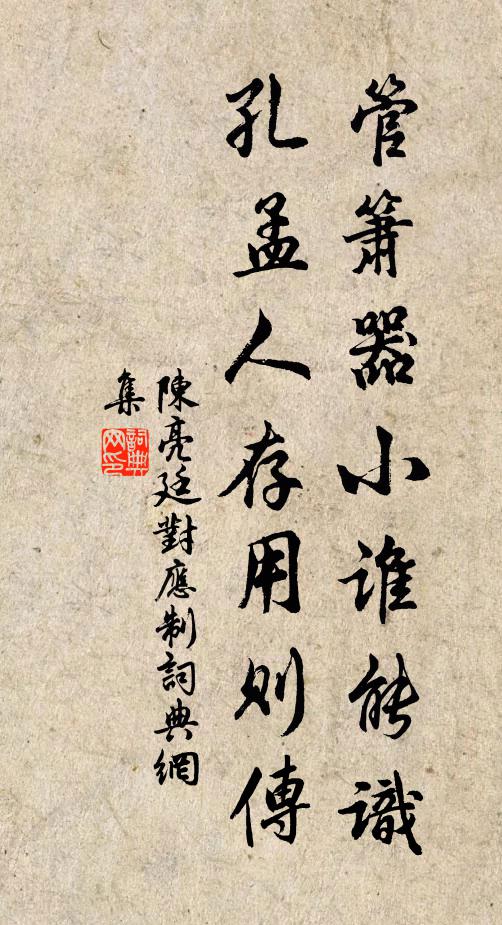 管簫器小谁能識
孔孟人存用则傳
陳亮廷對應制詞典網
集
詞典
网印